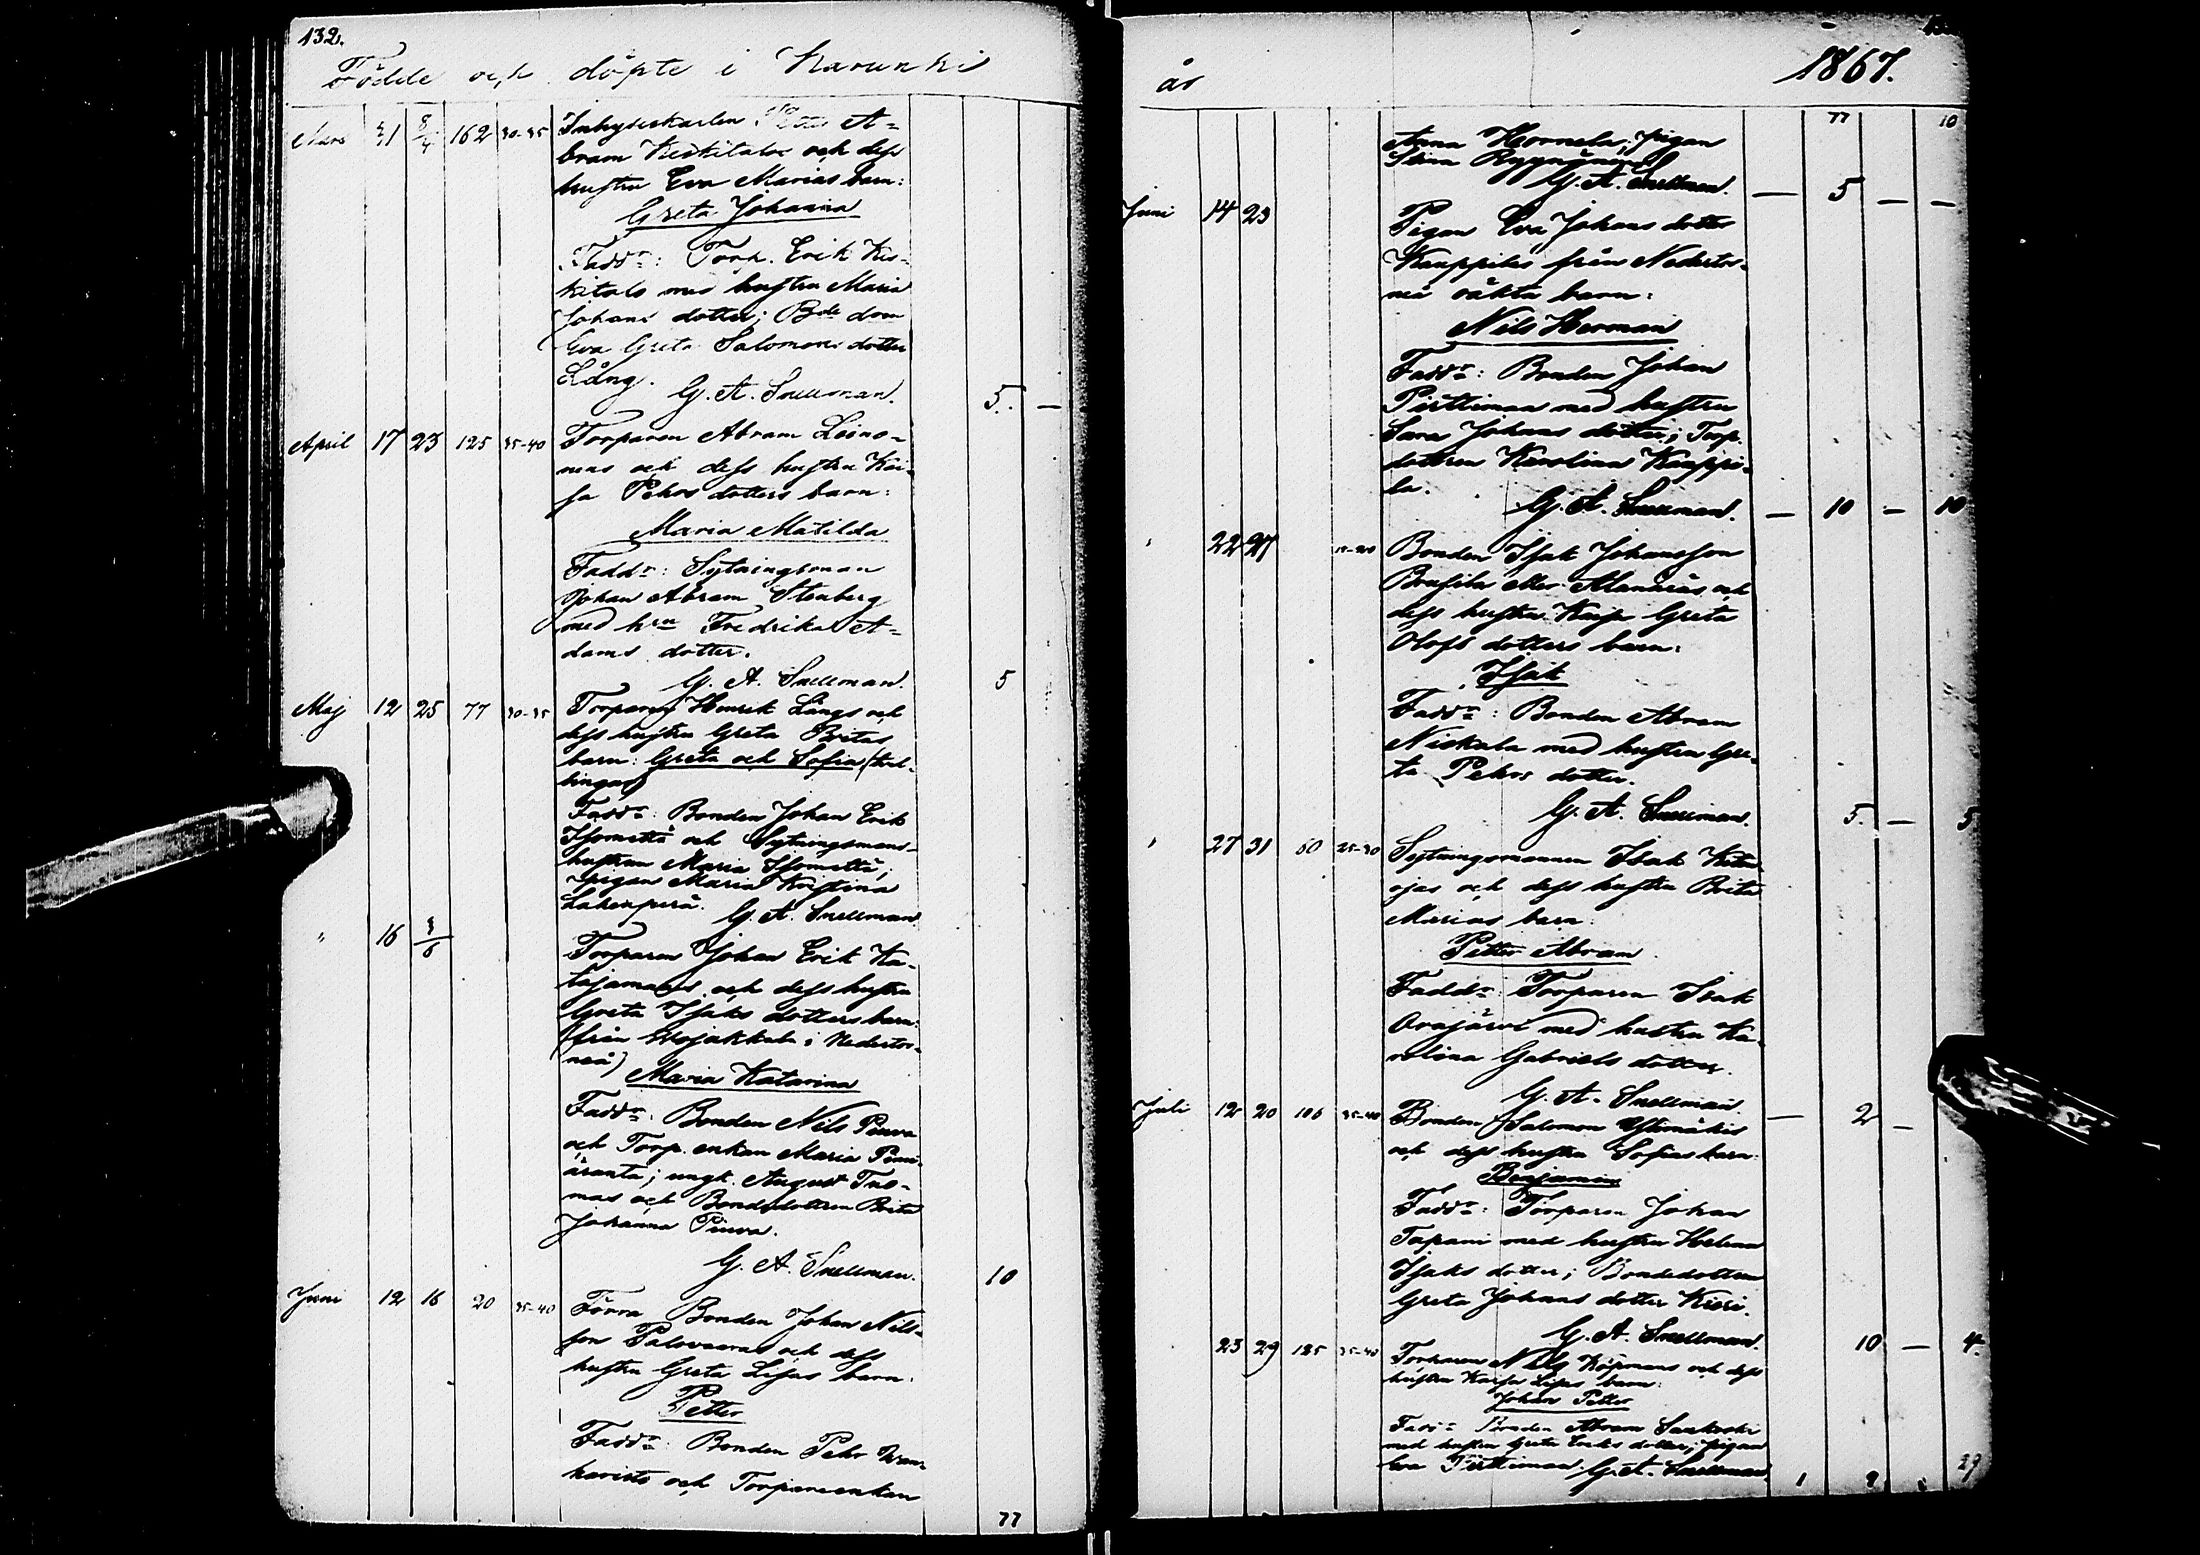 132.
Födde och döpte i Karunki
Mars 31 8/4 162 30-35 Inhyseskarlen Petter A-
bram Keskitalos och dess
hustru Eva Marias barn:
Greta Johanna
Faddr: Torp. Erik Kes-
kitalo med hustru Maria
Johans dotter; Bde dom
Eva Greta Salomons dotter
Lång.
G. A. Snellman. 5. —
April 17 23 125 35-40 Torparen Abram Leino-
nens och dess hustru Kai-
sa Pehrs dotters barn:
Maria Matilda
Faddr: Sytningsman
Johan Abram Stenberg
med hru Fredrika A-
dams dotter.
G. A. Snellman. 5
Maj 12 25 77 30-35 Torparen Henrik Långs och
dess hustru Greta Britas
barn: Greta och Sofia (tvil-
lingar)
Faddr: Bonden Johan Erik
Isometsä och Sytningsmans-
hustrun Maria Isometsä,
pigan Maria Kristina
Lakenperä. G. A. Snellman
" 16 3/6
Torparen Johan Erik Ka-
tajamaas och dess hustru
Greta Isaks dotters barn:
(från Wojakkala i Nedertor-
neå)
Maria Katarina
Faddr: Bonden Nils Pinva
och Torp. enkan Maria
äranta; ungk. August Tuo-
mas och Bondedottren Brita
Johanna Pinva.
G. A. Snellman. 10
Juni 12 16 20 35-40 Förra Bonden Johan Nils-
son Palovaaras och dess
hustru Greta Lisas barn:
Petter
Faddr: Bonden Pehr
karists och Torpareenkan
77
år 1867.
77 10
Anna Hornela; pigan
Stina Ryynänen
G. A. Snellman. — 5 — —
Juni 14 23
Pigan Eva Johans dotter
Kauppiles från Nedertor-
neå oäkta barn:
Nils Herman
Faddr: Bonden Johan
Pirttimaa med hustru
Sara Johans dotter; Torp.
dottren Karolina Kauppi-
la.
G. A. Snellman. — 10 — 10
" 22 27 Bonden Isak Johansson
Brusila eller Alamaas och
dess hustru Kaisa Greta
Olofs dotters barn:
Isak
Faddr: Bonden Abram
Niskala med hustru Gre-
ta Pehrs dotter.
G. A. Snellman. 5. — 5
" 27 31 60 25-30 Sytningsmannen Isak
ojas och dess hustru Brita
Marias barn
Petter Abram
Faddr: Torparen Isak
Orajärvi med hustru Ka-
rolina Gabriels dotter.
G. A. Snellman.
Juli 12 20 106 35-40 Bonden Salomon Ylimäkis — 2 —
och dess hustru Sofias barn:
Benjamin
Faddr: Torparen Johan
Tapani med hustru Helena
Isaks dotter; Bondedottren
Greta Johans dotter Kieri.
G. A. Snellman. 10 — 4.
23 29 125 35-40 Torparens Nils Köpmans och dess
hustru Kaisa Lisas barn:
Johan Petter
Faddr: Bonden Abram Sankoski
med hustru Greta Eriks dotter; pigan
Eva Pirttimaa. G. A. Snellman.
29